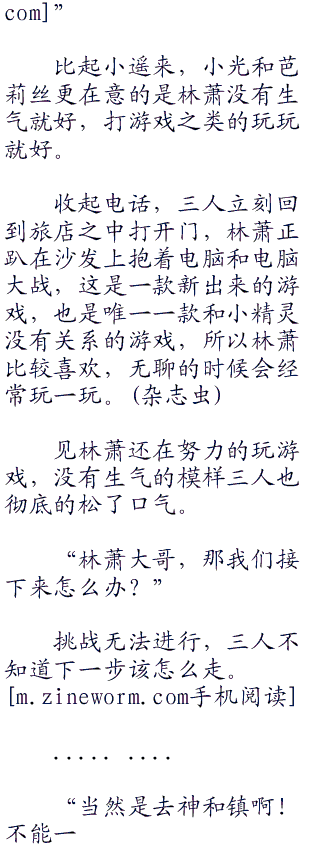 com]”
比起小遥来，小光和芭
莉丝更在意的是林萧没有生
气就好，打游戏之类的玩玩
就好。
收起电话，三人立刻回
到旅店之中打开门，林萧正
趴在沙发上抱着电脑和电脑
大战，这是一款新出来的游
戏，也是唯一一款和小精灵
没有关系的游戏，所以林萧
比较喜欢，无聊的时候会经
常玩一玩。(杂志虫)
见林萧还在努力的玩游
戏，没有生气的模样三人也
彻底的松了口气。
“林萧大哥，那我们接
下来怎么办？”
挑战无法进行，三人不
知道下一步该怎么走。
[m.zineworm.com手机阅读]
..... ....
“当然是去神和镇啊！
不能一